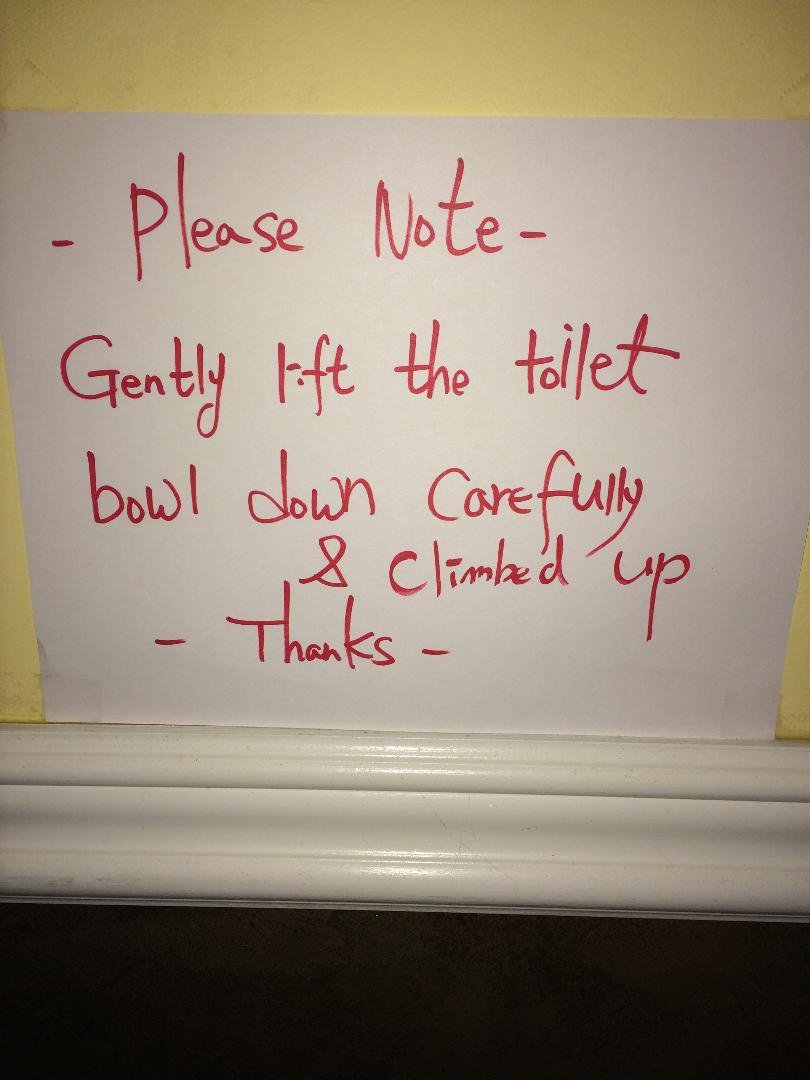 - Please Note -
Gently lift the toilet
bowl down carefully
& Climbed up
- Thanks -